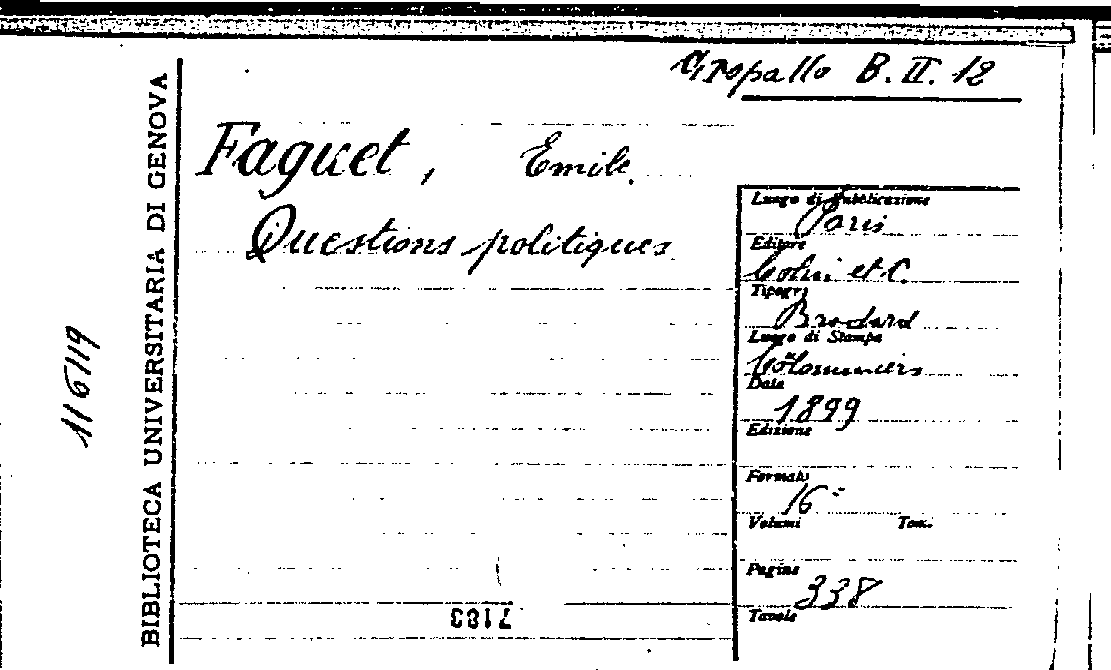 Gropallo B. II. 12
Faguet, Emile
Questions politiques
BIBLIOTECA UNIVERSITARIA DI GENOVA
116119
Luogo di Pubblicazione
Paris
Editore
Colin et C.
Tipogr.
Brodard
Luogo di Stampa
Coloumiers
Data
1899
Edizione
Formato
16°
Volumi Tom.
Pagine
338
Tavole
7183